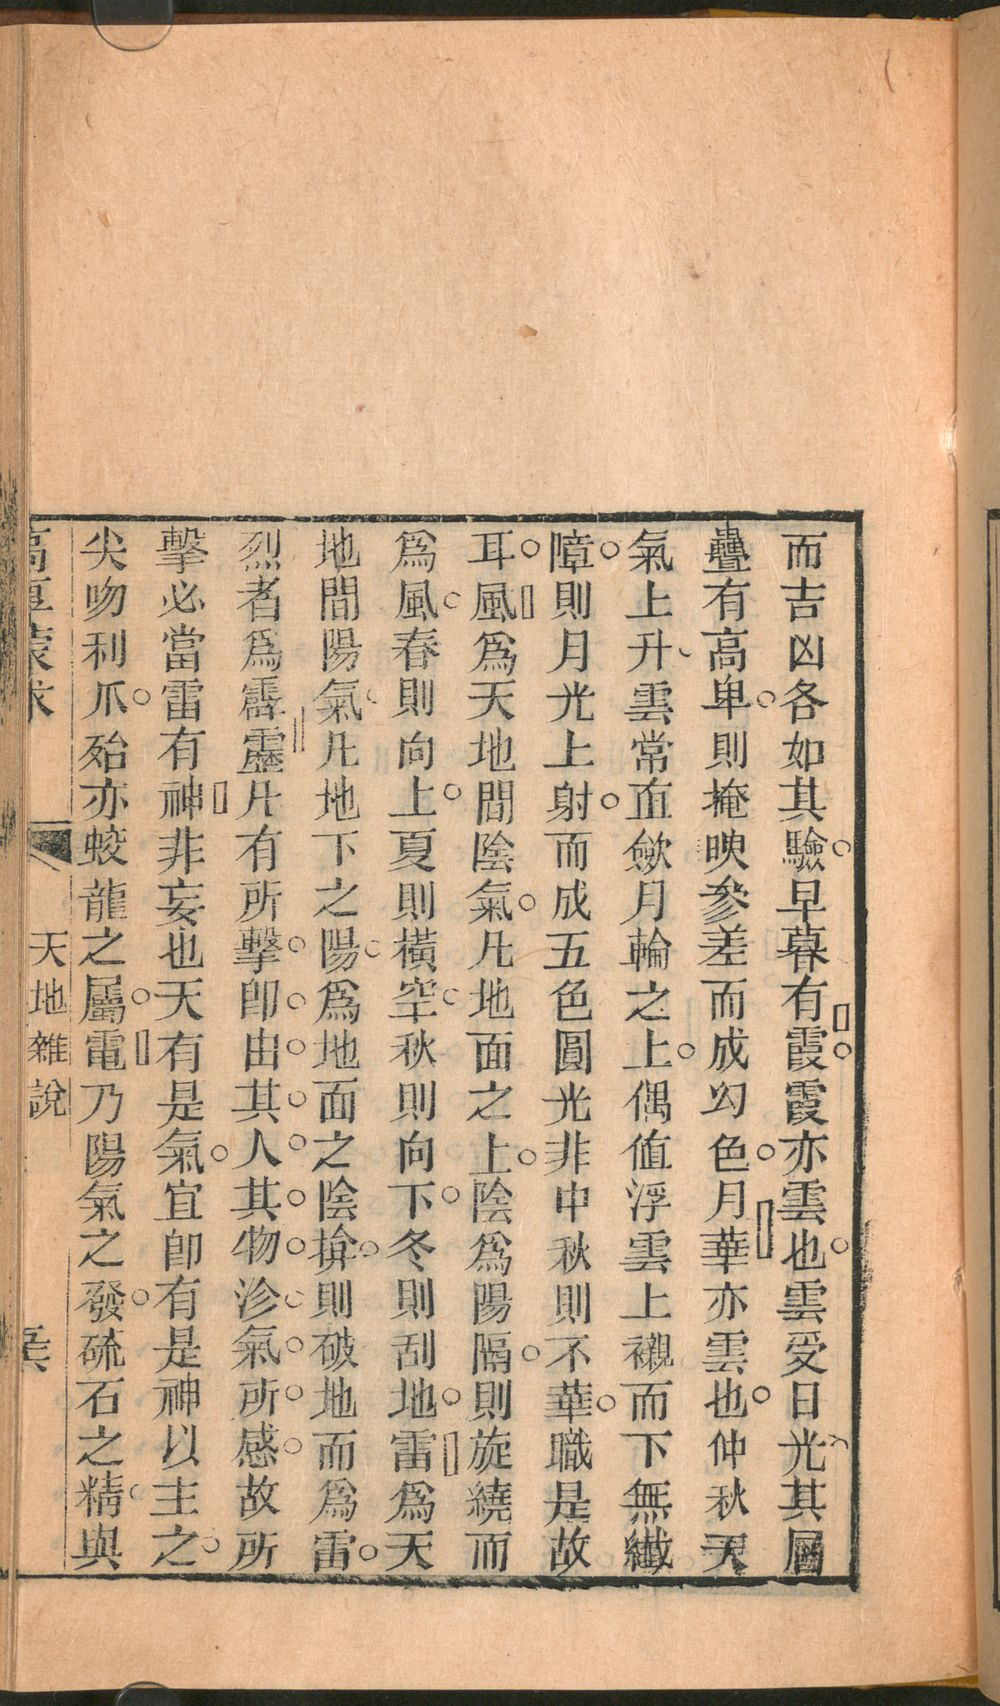 而吉凶各如其驗早暮有霞霞亦雲也雲受日光其層
疊有高卑則掩映參差而成幻色月華亦雲也仲秋天
氣上升雲常直歛月輪之上偶值浮雲上襯而下無纎
障則月光上射而成五色圓光非中秋則不華職是故
耳風爲天地間陰氣凡地面之上陰爲陽隔則旋繞而
爲風春則向上夏則橫空秋則向下冬則刮地雷爲天
地間陽氣凡地下之陽爲地面之陰揜則破地而爲雷
烈者爲霹靂凡有所擊卽由其人其物沴氣所感故所
擊必當雷有神非妄也天有是氣宜卽有是神以主之
尖吻利爪殆亦蛟龍之屬電乃陽氣之發硫石之精與
高厚蒙求
天地雜說